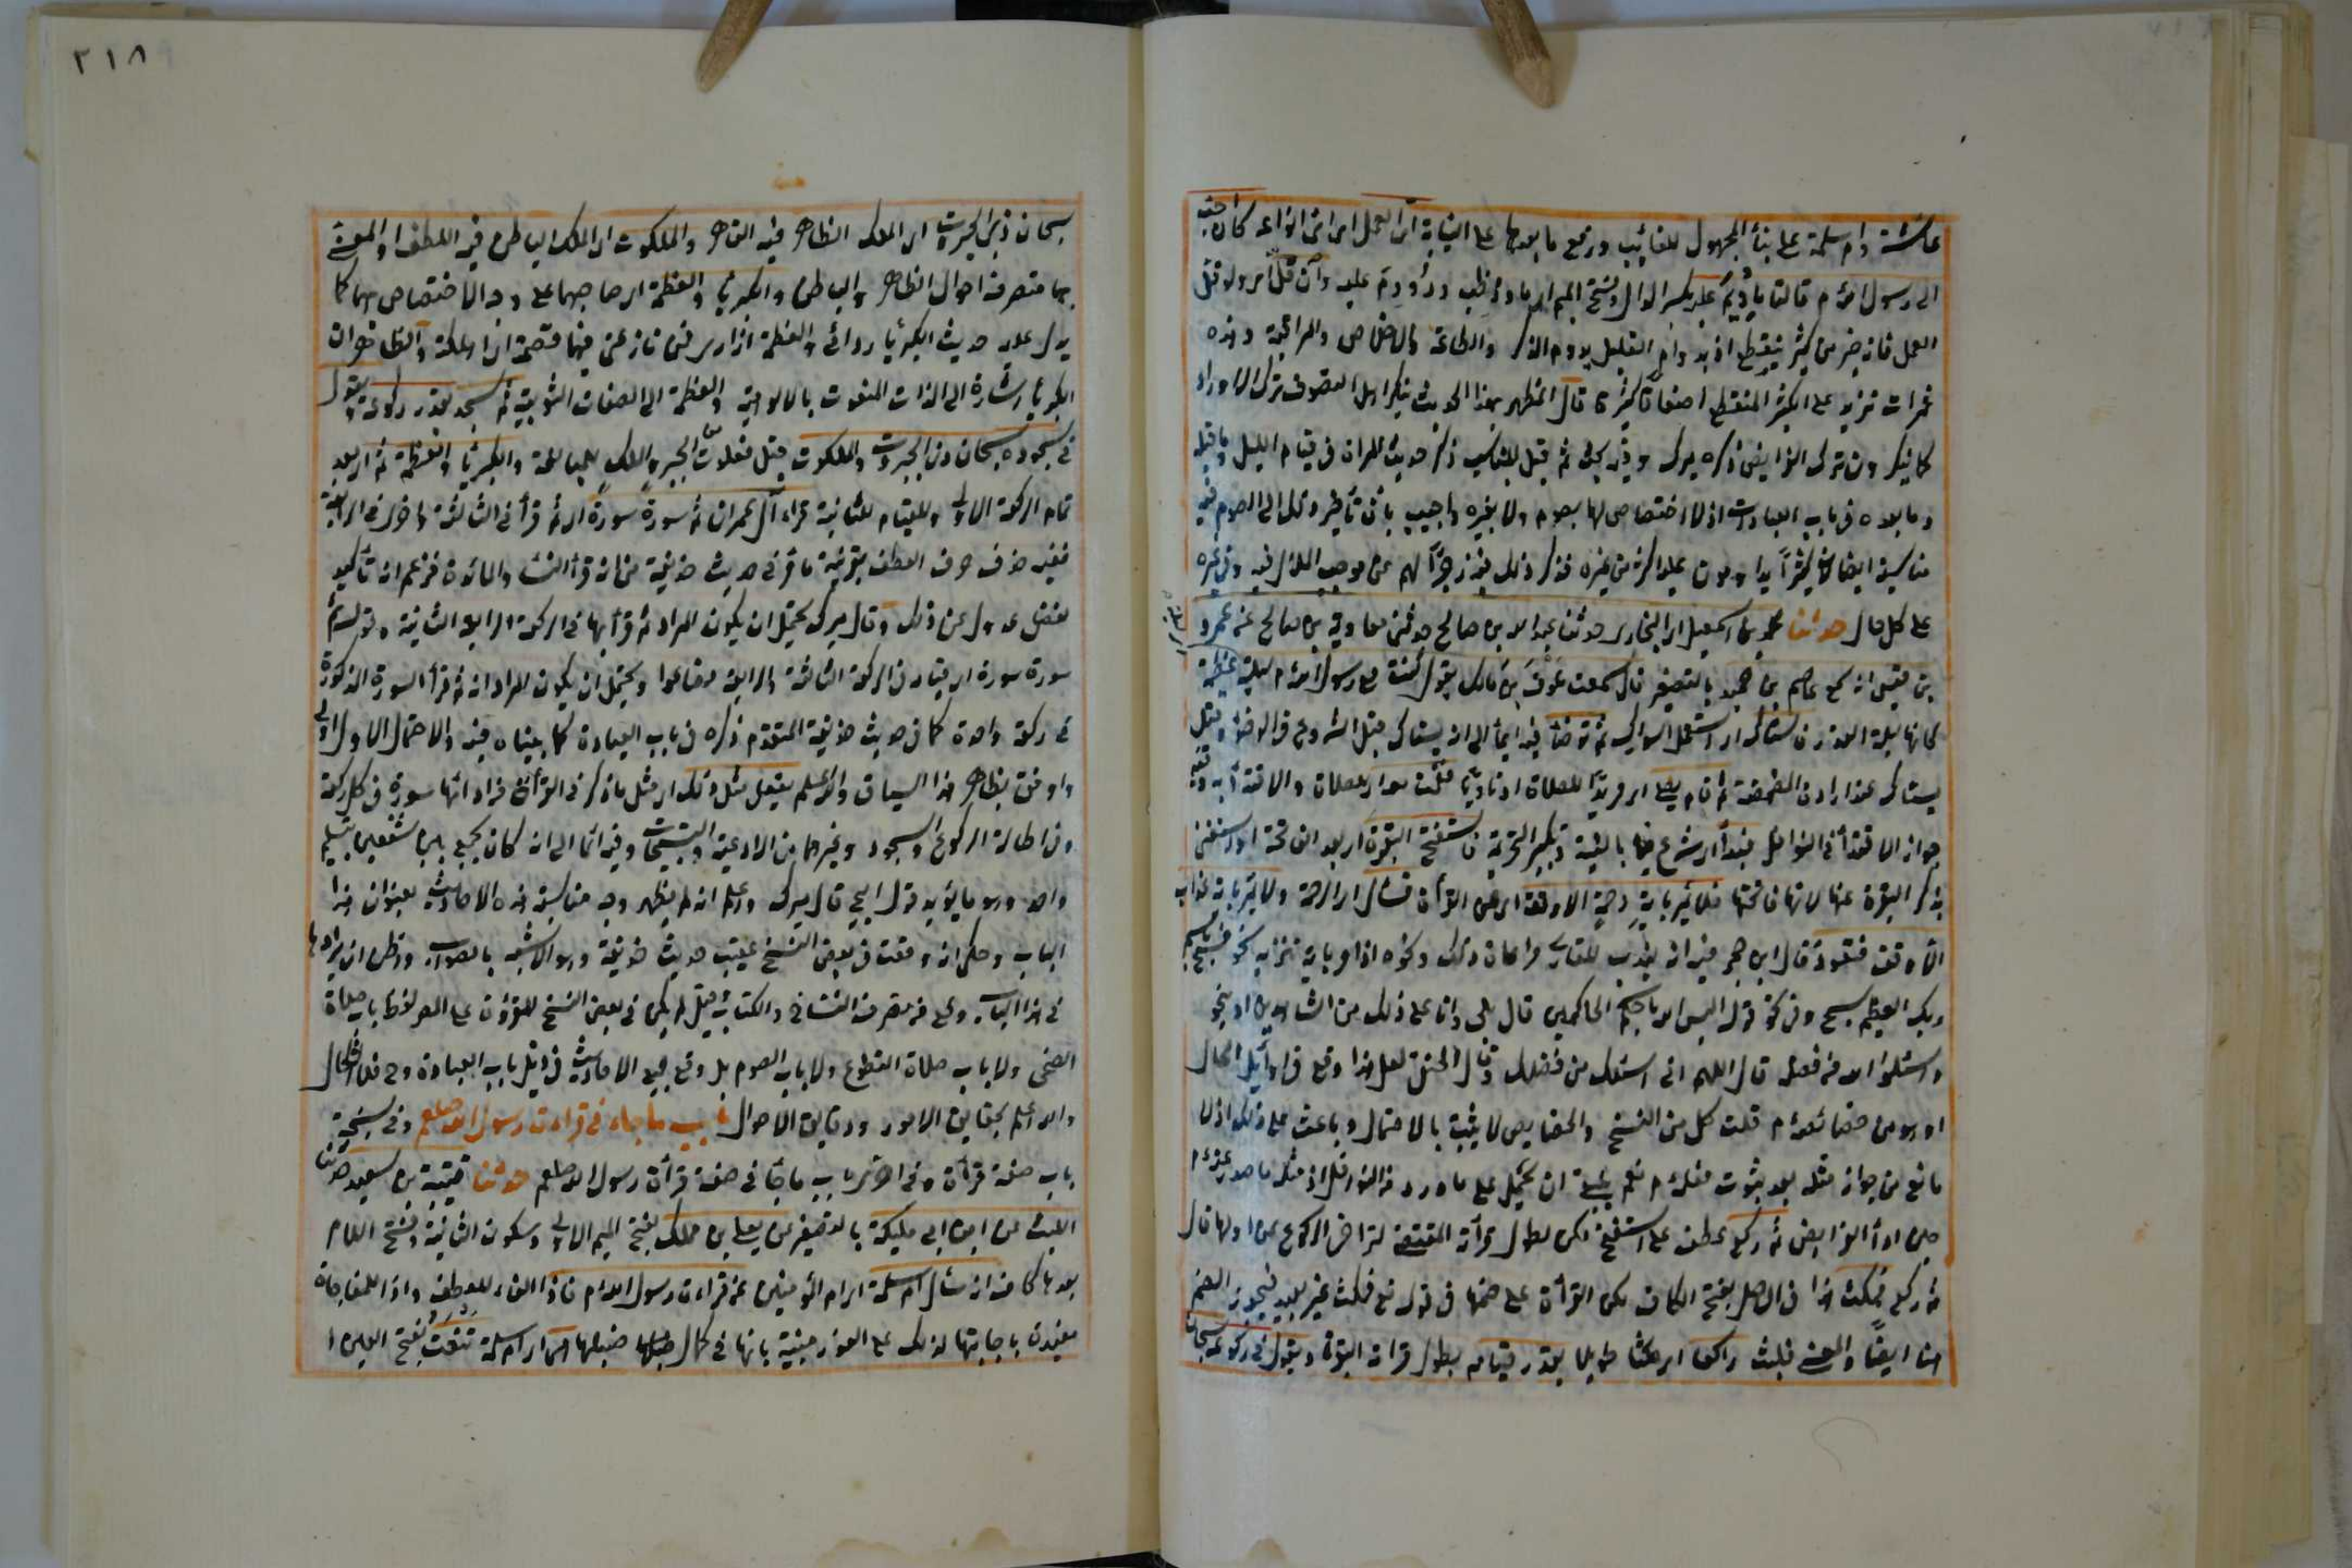 عائشة وام سلمة على بناء المجهول للغائب ورفع ما بعدها على النيابة اى العمل اى اى انواعه كان احب
الى رسول الله م قالتا ما ديم عليه بكسر الدال وفتح الميم اى ما ووظب ودووم عليه وان قل اى ولو قل
العمل فانه خير من كثير ينقطع اذ بدوام القليل يدوم الذكر والطاعة والاخلاص والمراقبة وهذه
ثمرات تزيد على الكثير المنقطع اضعافا كثيرة قال المظهر بهذا الحديث ينكر اهل التصوف ترك الاوراد
كما ينكرون ترك الفرائض ذكره ميرك وفيه بحث ثم قيل المناسب ذكر حديث المرأة في قيام الليل وما قبله
وما بعده في باب العبادات اذ لا اختصاص لها بصوم ولا بغيره واجيب بان تأخير ذلك الى الصوم فيه
مناسبة ايضا لان كثيرا يداومون عليه اكثر من غيره فذكر ذلك فيه زجرا لهم عن موجب الملال فيه وفي غيره
على كل حال حدثنا محمد بن اسمعيل اى البخارى حدثنا عبد الله بن صالح حدثنى معاوية بن صالح عن عمرو
بن قيس انه سمع عاصم بن حميد بالتصغير قال سمعت عوف بن مالك يقول كنت مع رسول الله م ليلة عظيمة
كانها ليلة القدر فاستاك اى استعمل السواك ثم توضأ فيه ايماء الى انه يستاك قبل الشروع في الوضوء وقيل
يستاك عند ارادة المضمضة ثم قام يصلى اى مريدا للصلاة او ناويا فقمت معه اى للصلاة والاقتداء به وفيه
جواز الاقتداء في النوافل فبدأ اى شرع فيها بالنية وتكبير التحريمة فاستفتح البقرة اى بعد الفاتحة او استغنى
بذكر البقرة عنها لانها فاتحتها فلا يمر باية رحمة الا وقف اى عن القرأة فسأل اى الرحمة ولا يمر باية عذاب
الا وقف فتعوذ قال ابن حجر فيه انه يندب للقارى مراعاة ذلك ونحوه اذا مر باية تنزيه نحو فسبح باسم
ربك العظيم سبح وفى نحو قوله اليس الله باحكم الحاكمين قال بلى وانا على ذلك من الشاهدين او بنحو
واسئلوا الله من فضله قال اللهم انى اسئلك من فضلك وقال الحنفى لعل هذا وقع في اوائل الحال
او هو من خصائصه م قلت كل من النسخ والخصايص لا يثبت بالاحتمال وباعث على ذلك اذ لا
مانع من جواز مثله بعد ثبوت فعله م نعم ينبغى ان يحمل على ما ورد في النوافل اذ مثله ما صدر عنه م
حين اداء الفرايض ثم ركع عطف على استفتح لكن لطول قرأته المقتضية لتراخى الركوع عن اولها قال
ثم ركع فمكث هذا في الاصل بفتح الكاف لكن القرأة على ضمها في قوله تع فمكث غير بعيد فيجوز الضم
هنا ايضا والمعنى فلبث راكعا اى مكثا طويلا بقدر قيامه بطول قراءة البقرة ويقول في ركوعه سبحان
٢١٨
سبحان ذى الجبروت اى الملك الظاهر فيه القهر والملكوت اى الملك الباطن فيه اللطف والمعنى
بهما متصرف احوال الظاهر والباطن والكبرياء والعظمة اى صاحبهما على وجه الاختصاص بهما كما
يدل عليه حديث الكبرياء ردائى والعظمة ازارى فمن نازعنى فيهما قصمته اى اهلكته والظاهر ان
الكبرياء اشارة الى الذات المنعوت بالالوهية والعظمة الى الصفات الثبوتية ثم سجد بقدر ركوعه ويقول
في سجوده سبحان ذى الجبروت والملكوت قيل فعلوت من الجبر والملك للمبالغة والكبرياء والعظمة ثم اى بعد
تمام الركعة الاولى والقيام للثانية قراء آل عمران ثم سورة سورة اى ثم قرأ في الثالثة واخرى في الرابعة
ففيه حذف حرف العطف بقرينة ما مر في حديث حذيفة من انه قرأ النساء والمائدة فزعم انه تأكيد
لفظى عدول عن ذلك وقال ميرك يحتمل ان يكون المراد ثم قرأ بها في الركعة الثانية وقوله ثم
سورة سورة اى قيام في الركعة الثالثة والرابعة فصاعدا ويحتمل ان يكون المراد انه ثم قرأ السورة المذكورة
في ركعة واحدة كما في حديث حذيفة المتقدم ذكره في باب العبادة كما بيناه فيه والاحتمال الاول اولى
واوفق بظاهر هذا السياق والله اعلم يفعل مثل ذلك اى مثل ما ذكر في القرأة من قراءتها سورة في كل ركعة
وفى اطالة الركوع والسجود وغيرهما من الادعية والتسبيحات وفيه ايماء الى انه كان يجمع بين شفعين بتسليم
واحد وهو ما يؤيد قول ابى ح قال ميرك واعلم انه لم يظهر وجه مناسبة هذه الاحاديث بعنوان هذا
الباب وحكى انه وقعت في بعض النسخ عقيب حديث حذيفة وهو الاشبه بالصواب واظن ان ايرادها
في هذا الباب وقع من تصرف النساخ والكتاب وقيل لم يكن في بعض النسخ المقروءة على المص لفظ باب صلاة
الضحى ولا باب صلاة التطوع ولا باب الصوم بل وقع جميع الاحاديث في ذيل باب العبادة وح فلا اشكال
والله اعلم بحقايق الامور ودقايق الاحوال باب ما جاء في قراءة رسول الله صلعم وفى نسخة
باب صفة قرأة وفى اخرى باب ما جاء في صفة قرأة رسول الله صلعم حدثنا قتيبة بن سعيد حدثنا
الليث عن ابن ابى مليكة بالتصغير عن يعلى بن مملك بفتح الميم الاولى وسكون الثانية وفتح اللام
بعدها كاف انه سأل ام سلمة اى ام المؤمنين عن قراءة رسول الله م فاذا الفاء للعطف واذا للمفاجاة
مفيدة باجابتها لذلك على الفور مبنية بانها في كمال ضبطها هى اى ام سلمة تنعت بفتح العين ا